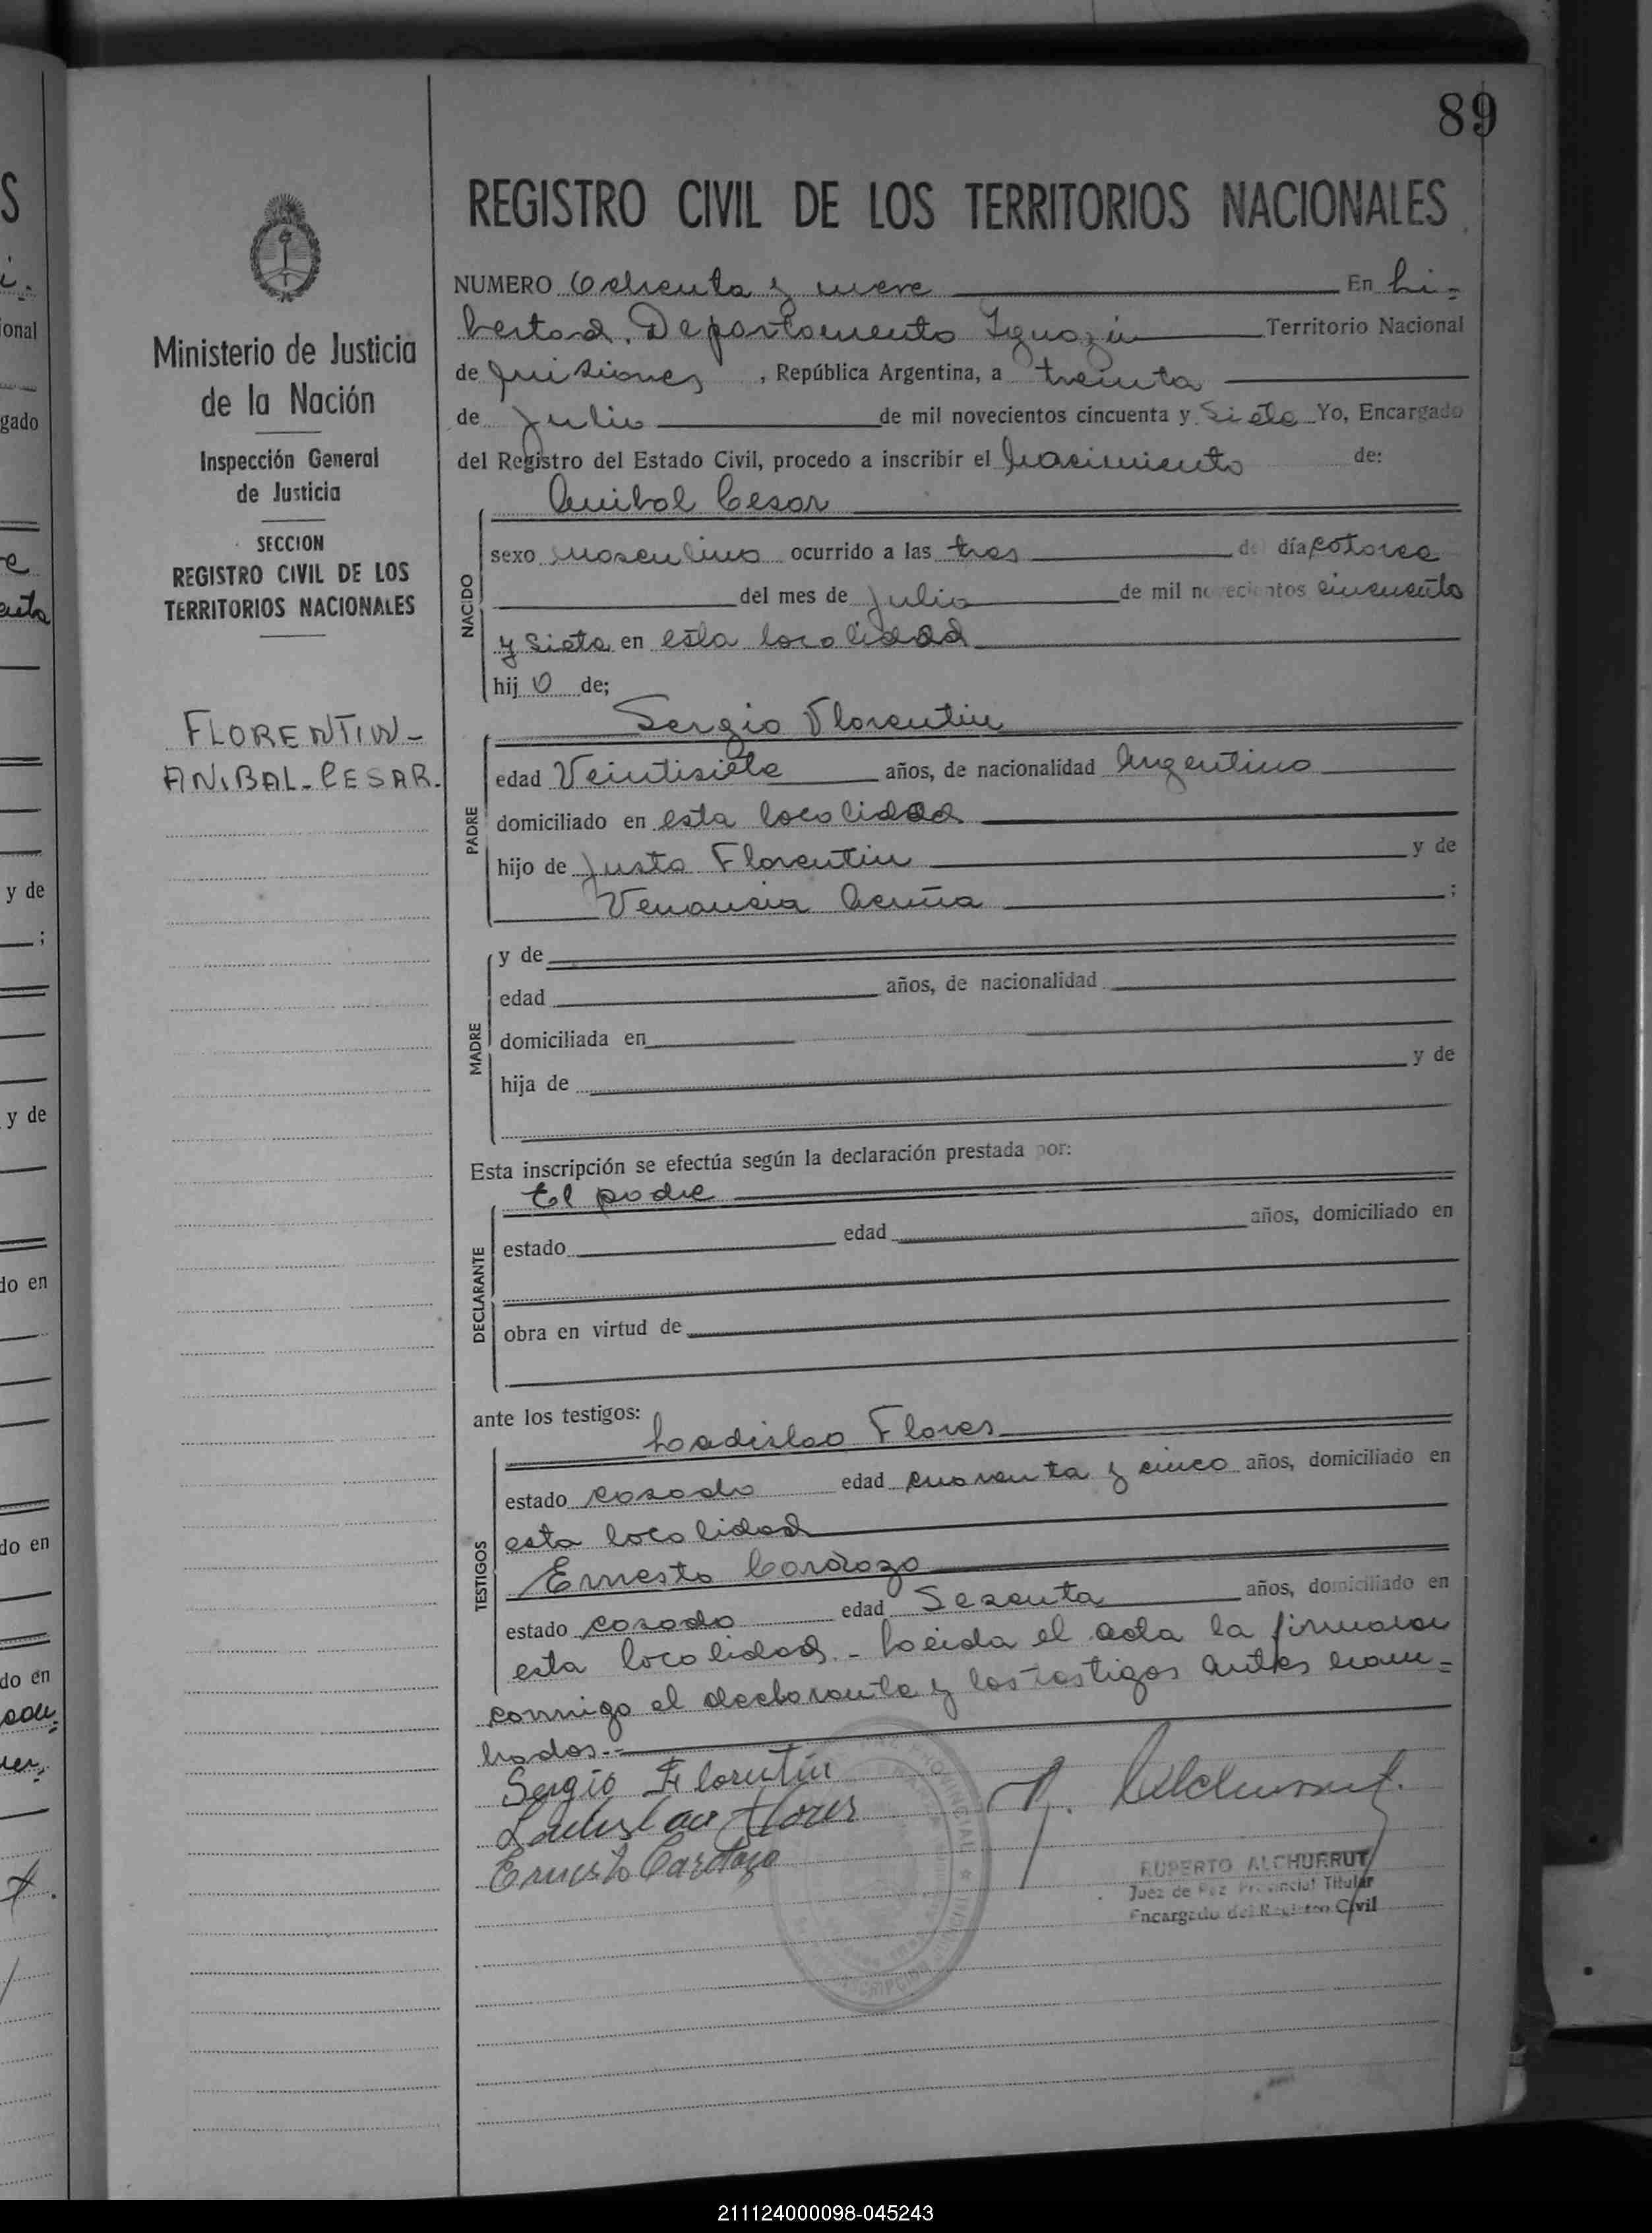 89
REGISTRO CIVIL DE LOS TERRITORIOS NACIONALES
Ministerio de Justicia
de la Nación
Inspección General
de Justicia
SECCION
REGISTRO CIVIL DE LOS
TERRITORIOS NACIONALES
FLORENTIN-
ANIBAL-CESAR.
NUMERO Ochenta y nueve En Li=
bertad, Departamento Iguazú Territorio Nacional
de Misiones, República Argentina, a treinta
de Julio de mil novecientos cincuenta y Siete Yo, Encargado
del Registro del Estado Civil, procedo a inscribir el Nacimiento de:
Anibal Cesar
NACIDO
sexo masculino ocurrido a las tres del día catorce
del mes de Julio de mil novecientos cincuenta
y siete en esta localidad
hijo de;
Sergio Florentin
PADRE
edad Veintisiete años, de nacionalidad Argentino
domiciliado en esta localidad
hijo de Justo Florentin y de
Venancia Acuña ;
MADRE
y de
edad años, de nacionalidad
domiciliada en
hija de y de
Esta inscripción se efectúa según la declaración prestada por:
El padre
DECLARANTE
estado edad años, domiciliado en
obra en virtud de
ante los testigos:
Ladislao Flores
TESTIGOS
estado casado edad cuarenta y cinco años, domiciliado en
esta localidad
Ernesto Cardozo
estado casado edad Sesenta años, domiciliado en
esta localidad.- Leida el acta la firman
conmigo el declarante y los testigos antes nom=
brados.-
Sergio Florentin
Ladislao Flores
Ernesto Cardozo
R. Alchurrut.
RUPERTO ALCHURRUT
Juez de Paz Provincial Titular
Encargado del Registro Civil
211124000098-045243